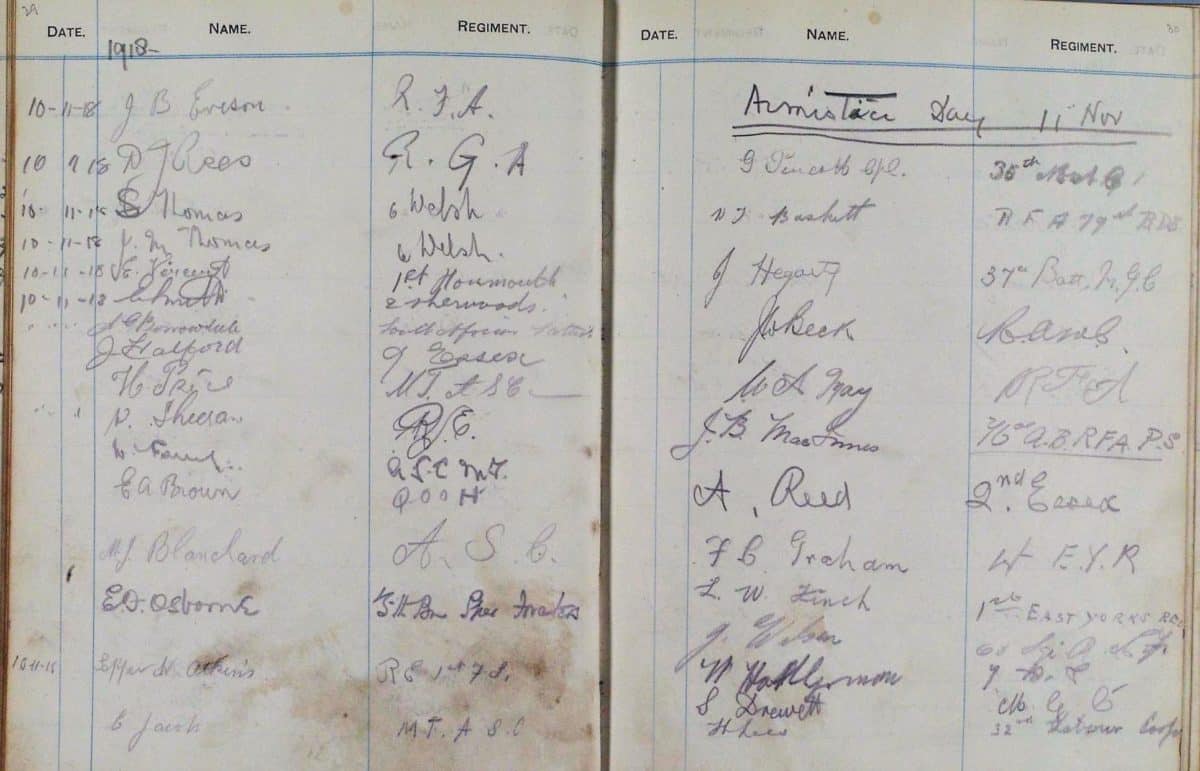 29
DATE. NAME. REGIMENT.
1918-
10-11-18 J B Eveson R. F. A.
10 9 18 D J Rees R. G. A
10- 11-18 S Thomas 6 Welsh
10-11-18 J. M Thomas 6 Welsh.
10-11-18 Vincent 1st Monmouth
10-11-18 2 Sherwoods.
J G Borrowdale South African
J Halford 9 Essex
H. Price M T. A S C
Sheeran R. E.
W. A S C M T.
E A Brown Q O O H
Blanchard A. S. C.
E. D. Osborne 5th Bn Foresters
10-11-18 Atkins R E 1st F S.
C Jack M T. A S C
30
DATE. NAME. REGIMENT.
Armistice Day 11 Nov
G Cpl. 36th
Baskett R F A 79th BDE
J Hegarty 37th Batt. M. G C
J W Beck R. A. M. C.
W A May R F A
J. B. MacInnes 76th A. B. R F A. P. S
A. Reed 2nd. Essex
F C Graham W E. Y. R
L. W. Finch 1st EAST YORKS REG
J. Wilson
S Drewett M G C
H Lees 32nd Labour Corps